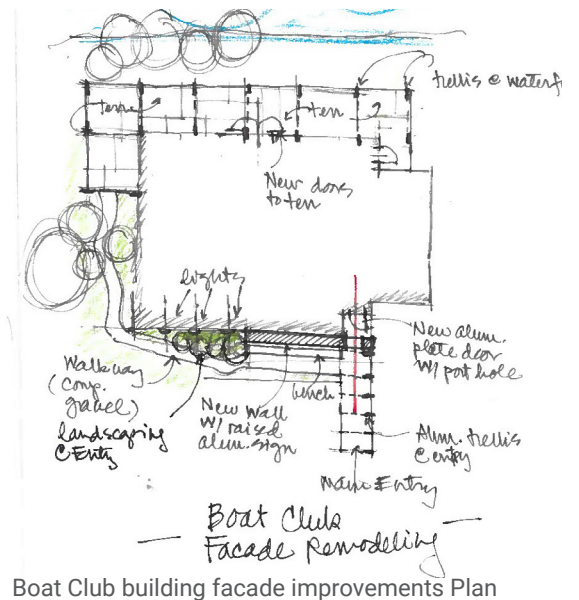 trellis @ waterf
terr
terr
New doors
to terr
lights
New alum.
plate door
w/ port hole
Walkway
(comp.
gravel)
landscaping
@ Entry
New Wall
w/ raised
alum. sign
bench
Alum. trellis
@ entry
main Entry
Boat Club
Facade Remodeling
Boat Club building facade improvements Plan